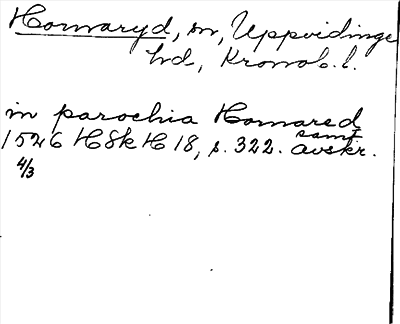 Homaryd, sn, Uppvidinge
hd, Kronob. l.
in parochia Homared
samt
1526 HSkH 18, s. 322. avskr.
4/3